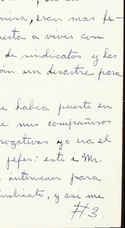 misa, eran mas fe-
esta a vivir con
de sindicatos y las
an un desastre para
e habia puesto en
e mis compañeros
rogativas yo era el
jefes: esto a Mr.
intervenir para
indicato, y asi me
#3.